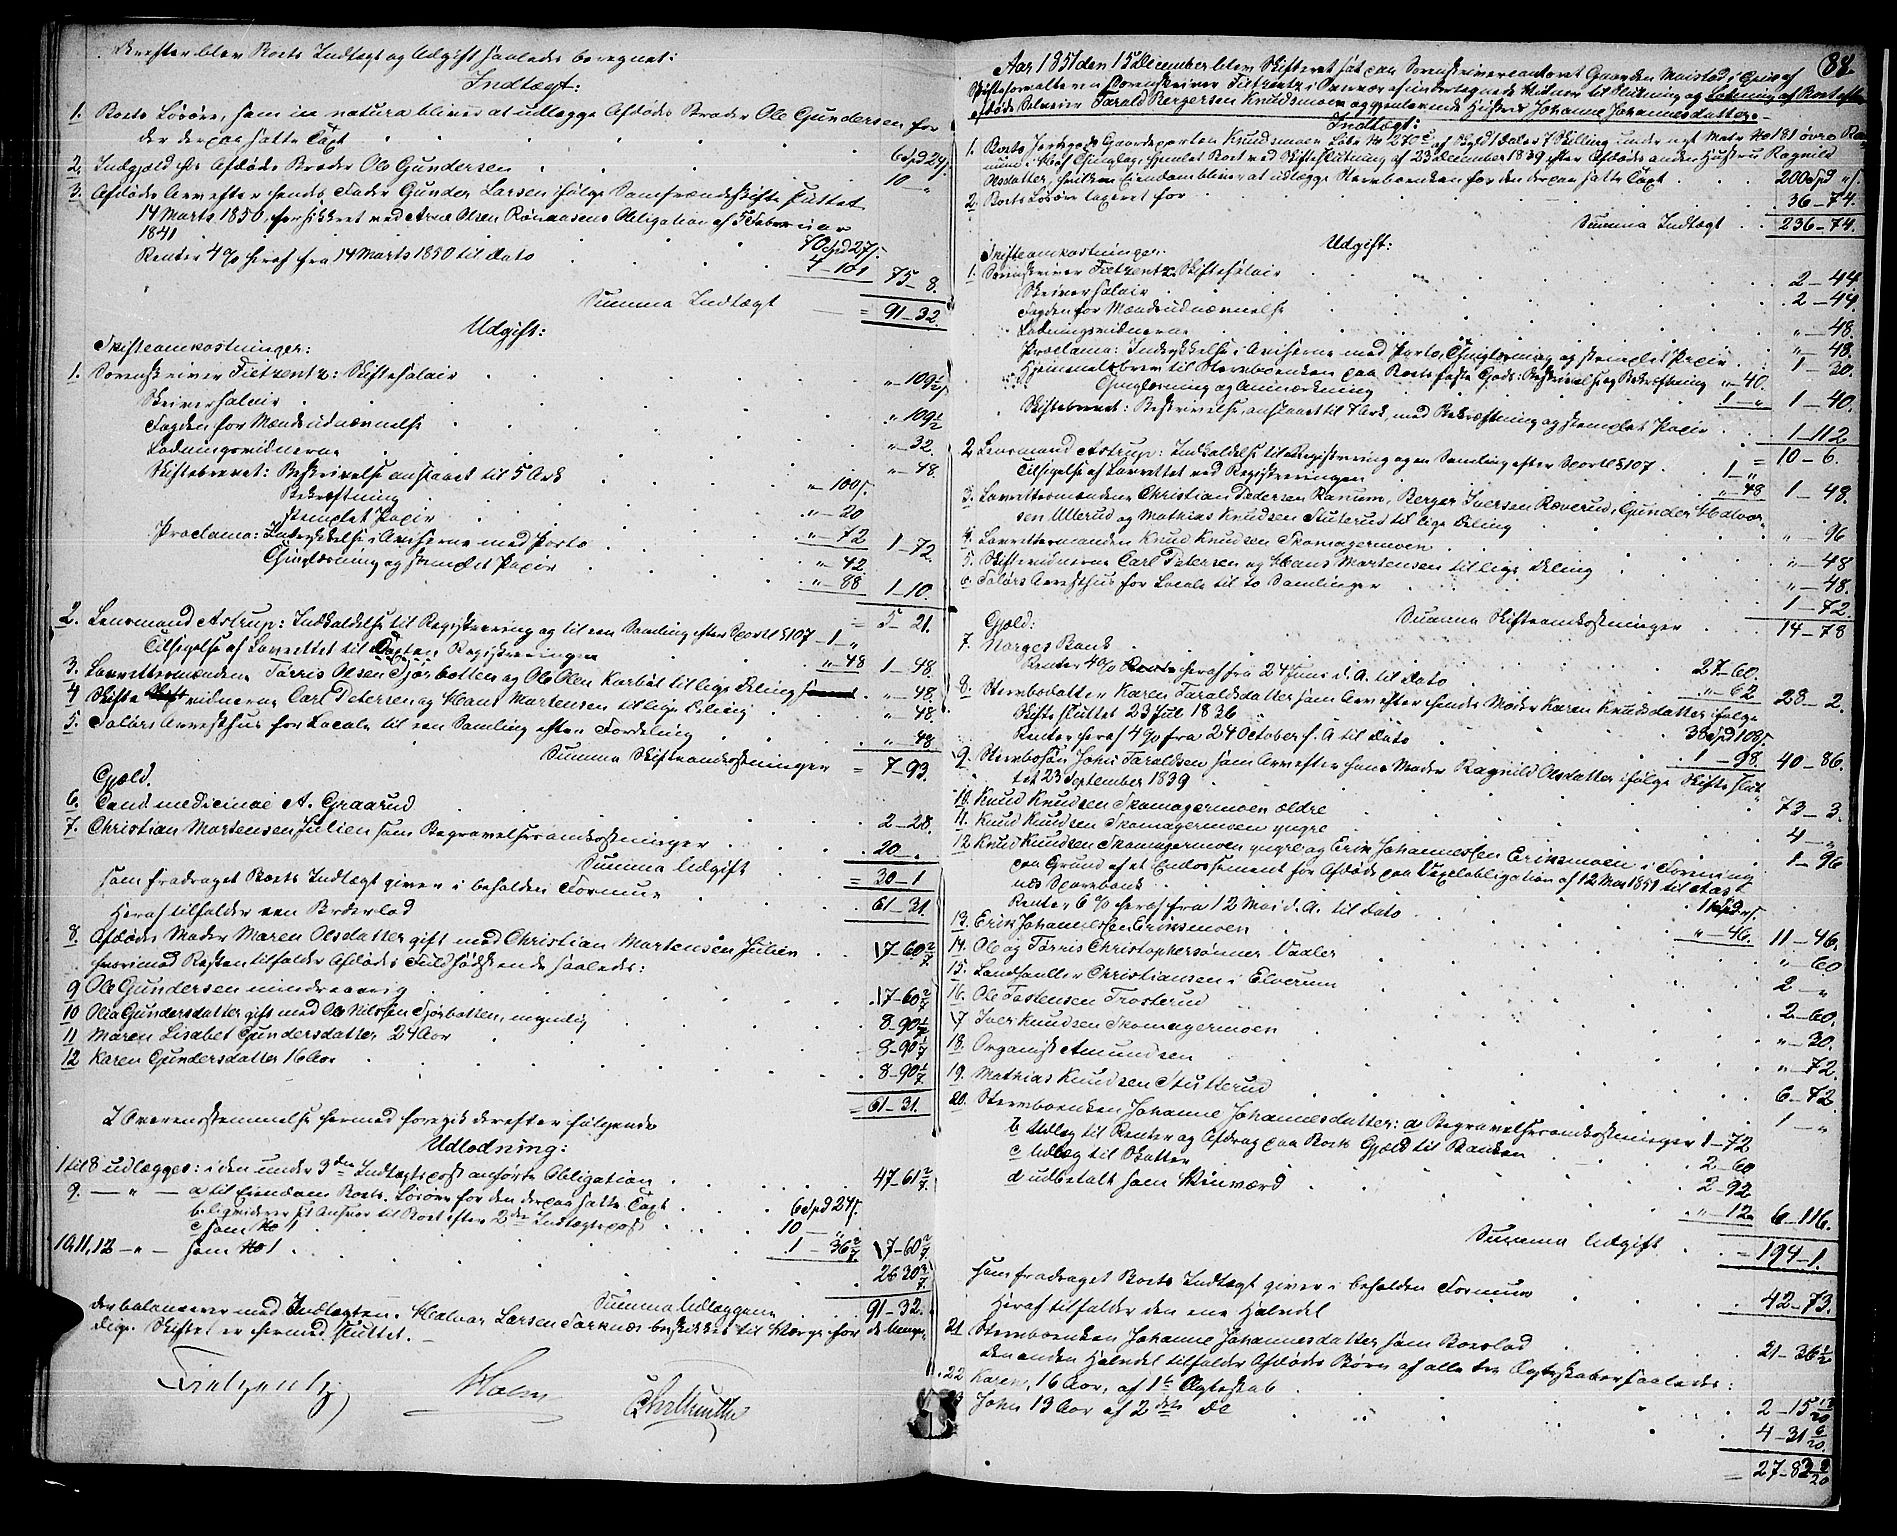 derefter blev Boets Indtægt og Udgift saaledes beregnet:
Indtægt:
1. Boets Løsøre, som in natura bliver at udlægge Afdødes Broder Ole Gundersen, for
den derpaa satte Taxt 6 spd 24 s.
2. Indgjæld fra Afdødes Broder Ole Gundersen 10 "
3. Afdødes Arv efter hendes Fader Gunder Larsen ifølge Samfrændeskifte sluttet
14 Marts 1850, forsikkret ved Arne Olsen Obligation af Februar
1841 70 spd 27 s.
Renter 4 % heraf fra 14 Marts 1850 til Dato 4-101 75-8.
Summa Indtægt = 91-32.
Udgift:
Skifteomkostninger:
1. Sorenskriver Fietzentz: Skiftesalair "-109½
Skriversalair "-109½
Fogden for Mændsudnævnelse "-32.
Lodningsvidnerne "-48.
Skiftebrevet: Beskrivelse anslaaet til 5 Ark "-100 s.
Bekræftning "-20
stemplet Papir "-72 1-72.
Proclama: Indrykkelse i Aviserne med Porto "-42.
Thinglæsning og stemplet Papir "-88 1-10.
= 5-21.
2. Lensmand Astrup: Indkaldelse til Registrering og til een Samling efter Sportl § 107 1-"
Tilsigelse af Lavrettet til Registreringen "-48 1-48.
3. Lavrettesmændene Tørris Olsen Tjørbotten og Ole Olsen Karbøl til lige Deling "-48.
4 Skiftevidnerne Carl Petersen og Hans Mortensen til lige Deling "-48.
5. Solørs Arresthus for Locale til een Samling efter Fordeling "-48
Summa Skifteomkostninger = 7-93.
Gjæld.
6. Cand medicinæ A. Graarud 2-28.
7. Christian Mortensen Julien som Begravelsesomkostninger 20-"
Summa Udgift = 30-1
som fradraget Boets Indtægt giver i beholden Formue 61-31.
Heraf tilfalder een Broderlod
8. Afdødes Moder Maren Olsdatter gift med Christian Mortensen Julien 17-60 2/7
hvorimod Resten tilfalder Afdødes Fuldsødskende saaledes:
9 Ole Gundersen mindreaarig 17-60 2/7
10 Olia Gundersdatter gift med Ole Nilssen Tjørbotten, myndig 8-90 1/7
11 Maren Lisabet Gundersdatter 24 Aar 8-90 1/7
12 Karen Gundersdatter 16 Aar 8-90 1/7
= 61-31.
I Overensstemmelse hermed foregik derefter følgende
Udlodning:
1 til 8 udlægges: i den under 3die Indtægtspost anførte Obligation 47-61 2/7
9. — " — a til Eiendom Boets Løsøre for den derpaa satte Taxt 6 spd 24 s.
b til Ansvar til Boet efter 2den Indtægtspost 10 "
c som No 1 1-36 2/7 17-60 2/7
10, 11, 12 — " — som No 1 26 30 3/7
Summa Udlæggene 91-32.
der balancerer med Indtægten. Halvor Larsen beskikkes til Værge for de umyn-
dige. Skiftet er hermed sluttet.
Fietzentz Holm
88.
Aar 1851 den 15 December blev Skifteret sat paa Sorenskrivercontoret Gaarden Maistad i Grue af
Skifteforvalteren Sorenskriver Fietzentz i Overvær af undertegnede Vidner til Slutning og Lodning af Boet efter
afdøde Selveier Tarald Bergersen Knudsmoen og gjenlevende Hustrue Johanne Johannesdatter.
Indtægt:
1. Boets Jordegods Gaardeparten Knudsmoen Løbe No 270 af Skyld 1 Daler 7 Skilling under nyt Matr No 181 øvre
i Grue Thinglag, hjemlet Boet ved Skifteslutning af 23 December 1839 efter Afdødes anden Hustrue Ragnild
Olsdatter, hvilken Eiendom bliver at udlægge Stervboenken for den derpaa satte Taxt 200 spd " s.
2. Boets Løsøre taxeret for 36-74.
Summa Indtægt 236-74.
Udgift:
Skifteomkostninger:
1. Sorenskriver Fietzentz: Skiftesalair 2-44.
Skriversalair 2-44.
Fogden for Mændsudnævnelse "-48.
Lodningsvidnerne "-48.
Proclama: Indrykkelse i Aviserne med Porto, Thinglæsning og stemplet Papir 1-30.
Hjemmelsbrev til Stervboenken paa Boets faste Gods: Beskrivelse og Bekræftning "-40.
Thinglæsning og Anmærkning 1-" 1-40.
Skiftebrevet: Beskrivelse anslaaet til 7 Ark, med Bekræftning og stemplet Papir 1-112
= 10-6.
2 Lensmand Astrup: Indkaldelse til Registrering og een Samling efter Sportl § 107 1-"
Tilsigelse af Lavrettet ved Registreringen "-48 1-48.
3. Lavrettesmændene Christian Pedersen Ranum, Berger Iversen Roverud, Gunder Halvor-
sen Ullerud og Mathias Knudsen Stuterud til lige Deling "-96
4. Lavrettesmanden Knud Knudsen Skomagermoen "-48
5. Skiftevidnerne Carl Petersen og Hans Mortensen til lige Deling "-48.
6. Solørs Arresthus for Locale til to Samlinger 1-72.
Summa Skifteomkostninger 14-78
Gjæld:
7. Norges Bank 27-60.
Renter 4 % heraf fra 24 Juni d. A. til Dato "-62 28-2.
8. Stervbodatter Karen Taraldsdatter som Arv efter hendes Moder Karen Knudsdatter ifølge
Skifte sluttet 23 Juli 1836 38 spd 108 s.
Renter heraf 4 % fra 24 October f. A til Dato 1-98. 40-86.
9. Stervbosøn John Taraldsen som Arv efter hans Moder Ragnild Olsdatter ifølge Skifte slut-
tet 23 September 1839 73-3.
10. Knud Knudsen Skomagermoen ældre 4-"
11. Knud Knudsen Skomagermoen yngre 1-96
12 Knud Knudsen Skomagermoen yngre og Erik Johannessen Eriksmoen i Forening
paa Grund af et Endossement for Afdøde paa Vexelobligation af 12 Mai 1851 til
Sparebank 11 spd " s.
Renter 6 % heraf fra 12 Mai d. A. til Dato "-46. 11-46.
13. Erik Johannessen Eriksmoen "-60
14. Ole og Tørris Christophersønner Vaaler 2-"
15. Landhandler Christiansen i Elverum 2-60.
16. Ole Tostensen Trosterud "-30.
17 Iver Knudsen Skomagermoen "-72.
18. Organist Amundsen 6-72.
19. Mathias Knudsen Stutterud 1-"
20. Stervboenken Johanne Johannesdatter: a Begravelsesomkostninger 1-72
b Udlæg til Renter og Afdrag paa Boets Gjæld til Banken 2-60
c Udlæg til Skatter 2-92
d udbetalt som "-12 6-116.
Summa Udgift = 194-1.
som fradraget Boets Indtægt giver i beholden Formue 42-73.
Heraf tilfalder den ene Halvdel
21 Stervboenken Johanne Johannesdatter som Boeslod 21-36½
den anden Halvdel tilfalder Afdødes Børn af alle tre Ægteskaber saaledes:
22 Karen, 16 Aar, af 1te Ægteskab 2-15 13/20
23 John 13 Aar af 2det Do 4-31 6/20
= 27-83 9/20